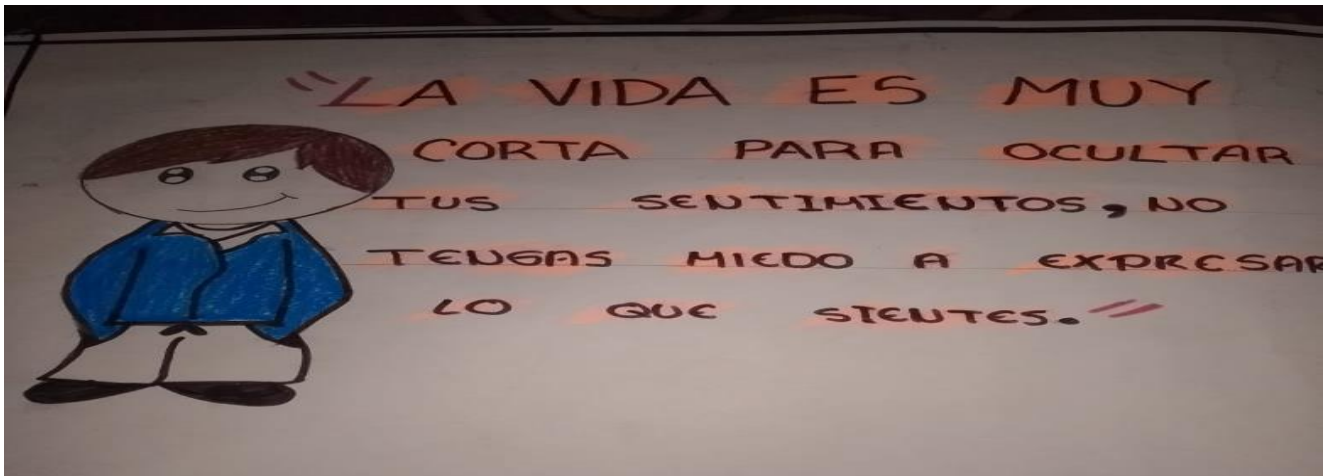 "LA VIDA ES MUY
CORTA PARA OCULTAR
TUS SENTIMIENTOS, NO
TENGAS MIEDO A EXPRESAR
LO QUE SIENTES."